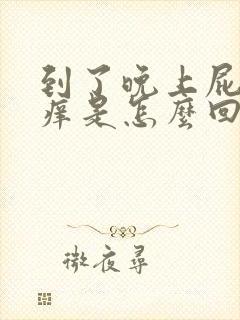 到了晚上屁
痒是怎麼回
微夜尋